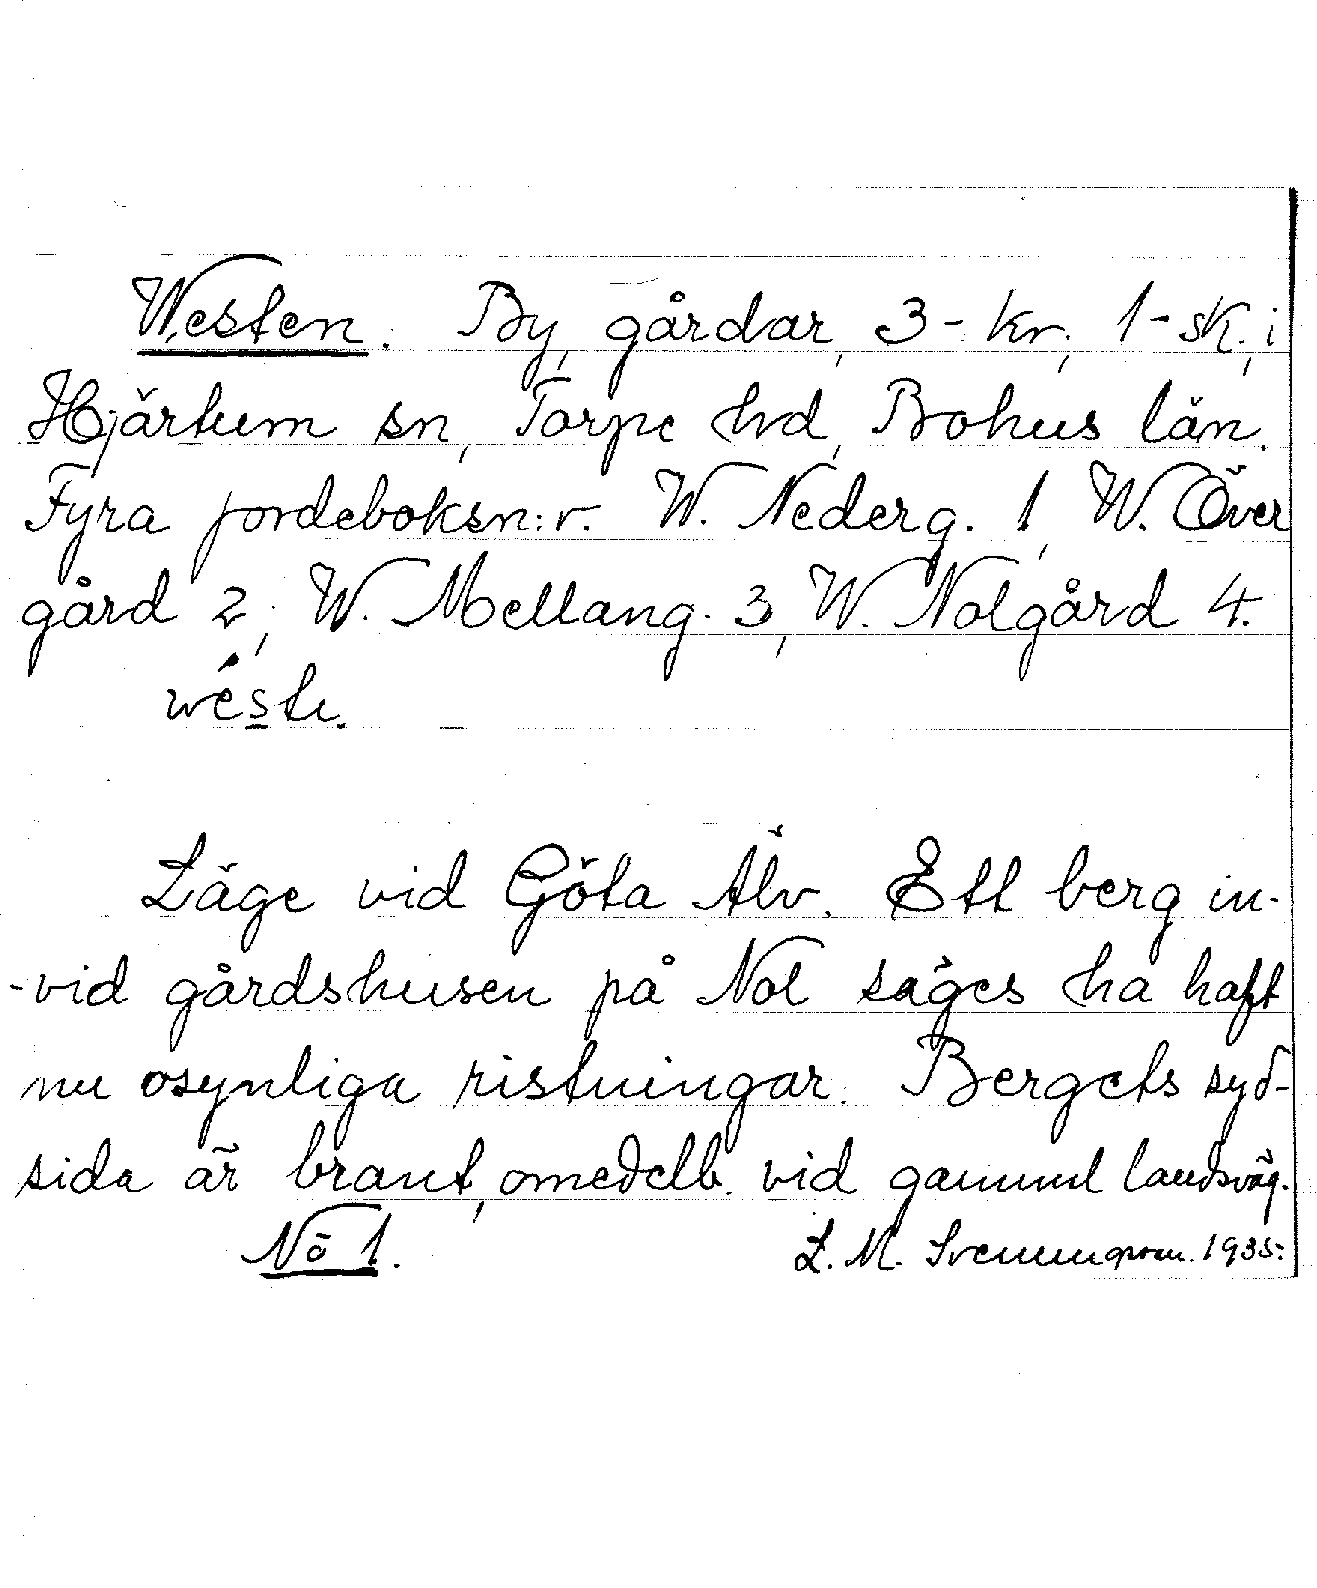 Westen. By, gårdar, 3 - kr, 1 - sk, i
Hjärtum sn, Torpe hd, Bohus län.
Fyra jordeboksn:r. W. Nederg. 1, W. Över
gård 2, W. Mellang. 3, W. Nolgård 4.
Läge vid Göta Älv. Ett berg in-
-vid gårdshusen på Nol säges ha haft
nu osynliga ristningar. Bergets syd-
sida är brant, omedelb. vid gammal landsväg.
No 1. L. M. 1935.